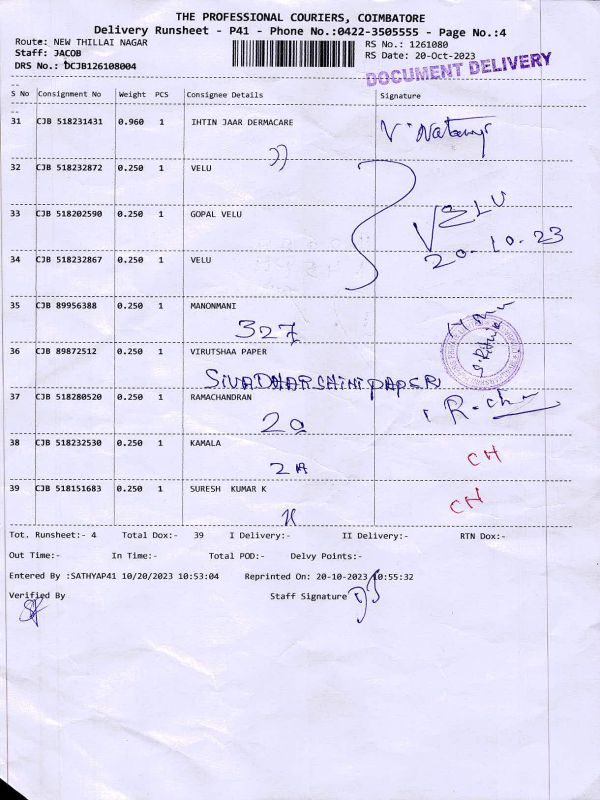 THE PROFESSIONAL COURIERS, COIMBATORE
Delivery Runsheet - P41 - Phone No.:0422-3505555 - Page No.:4
Route: NEW THILLAI NAGAR RS No.: 1261080
Staff: JACOB RS Date: 20-Oct-2023
DRS No.: DCJB126108004
DOCUMENT DELIVERY
S No Consignment No Weight PCS Consignee Details Signature
31 CJB 518231431 0.960 1 IHTIN JAAR DERMACARE
32 CJB 518232872 0.250 1 VELU
33 CJB 518202590 0.250 1 GOPAL VELU
VELU
20-10-23
34 CJB 518232867 0.250 1 VELU
35 CJB 89956388 0.250 1 MANONMANI
327
36 CJB 89872512 0.250 1 VIRUTSHAA PAPER
SIVADHARCHINI PAPER
37 CJB 518280520 0.250 1 RAMACHANDRAN
38 CJB 518232530 0.250 1 KAMALA
CH
39 CJB 518151683 0.250 1 SURESH KUMAR K
CH
Tot. Runsheet:- 4 Total Dox:- 39 I Delivery:- II Delivery:- RTN Dox:-
Out Time:- In Time:- Total POD:- Delvy Points:-
Entered By :SATHYAP41 10/20/2023 10:53:04 Reprinted On: 20-10-2023 10:55:32
Verified By Staff Signature